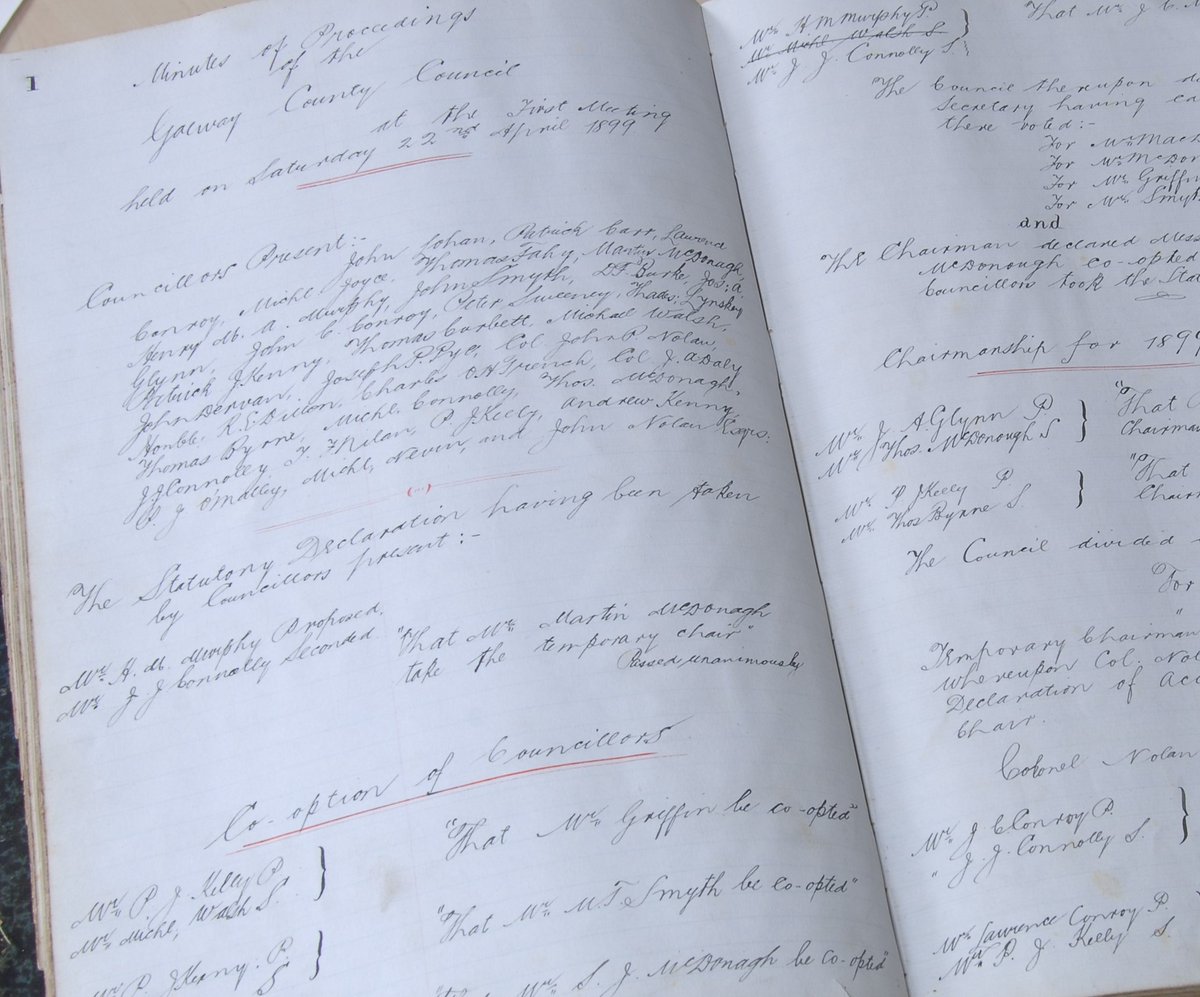 1
Minutes of Proceedings
of the
Galway County Council
at the First Meeting
held on Saturday 22nd April 1899
Councillors Present:-
John Cohan, Patrick Carr, Laurence
Conroy, Michl Joyce, Thomas Fahy, Martin McDonagh,
Henry M. A. Murphy, John Smyth, D.F. Burke, Jos: A.
Glynn, John C. Conroy, Peter Sweeney, Thos: Lynskey
Patrick J Kenny, Thomas Corbett, Michael Walsh,
John Dervan, Joseph P. Pye, Col John P. Nolan,
Honble. R.E. Dillon, Charles O'H Trench, Col J. A Daly
Thomas Byrne, Michl. Connolly, Thos. McDonagh,
J J Connolly T. Nilan, P. J. Kelly, Andrew Kenny,
P. J O'Malley, Michl, Nevin, and John Nolan Esqrs:
The Statutory Declaration having been taken
by Councillors present:-
Mr. H. M. Murphy Proposed. "That Mr. Martin McDonagh
Mr. J J Connolly Seconded. take the temporary chair"
Passed unanimously
Co-option of Councillors
"That Mr. Griffin be co-opted"
Mr. P. J. Kelly P.
Mr. Michl, Walsh S.
"That Mr. M.T. Smyth be co-opted"
Mr. P J Kenny. P.
S
Mr. S. J. McDonagh be co-opted"
Mr. H M Murphy P. That Mr J C
Mr Michl Walsh S.
Mr J J. Connolly S.
The Council thereupon
Secretary having
there voted:-
For Mr
For Mr McDon
For Mr Griffin
For Mr Smyth
and
The Chairman declared Mess
McDonough co-opted
Councillors took the Sta
Chairmanship for 1899
Mr J. A Glynn P "That C
Mr Thos. McDonough S Chairman
Mr P J Kelly P. "That
Mr Thos Byrne S. Chairm
The Council divided
For
"
Temporary Chairman
whereupon Col. Nol
Declaration of Acc
Chair.
Colonel Nolan
Mr J C Conroy P.
" J. J. Connolly S.
Mr Lawrence Conroy P.
Mr P. J Kelly S